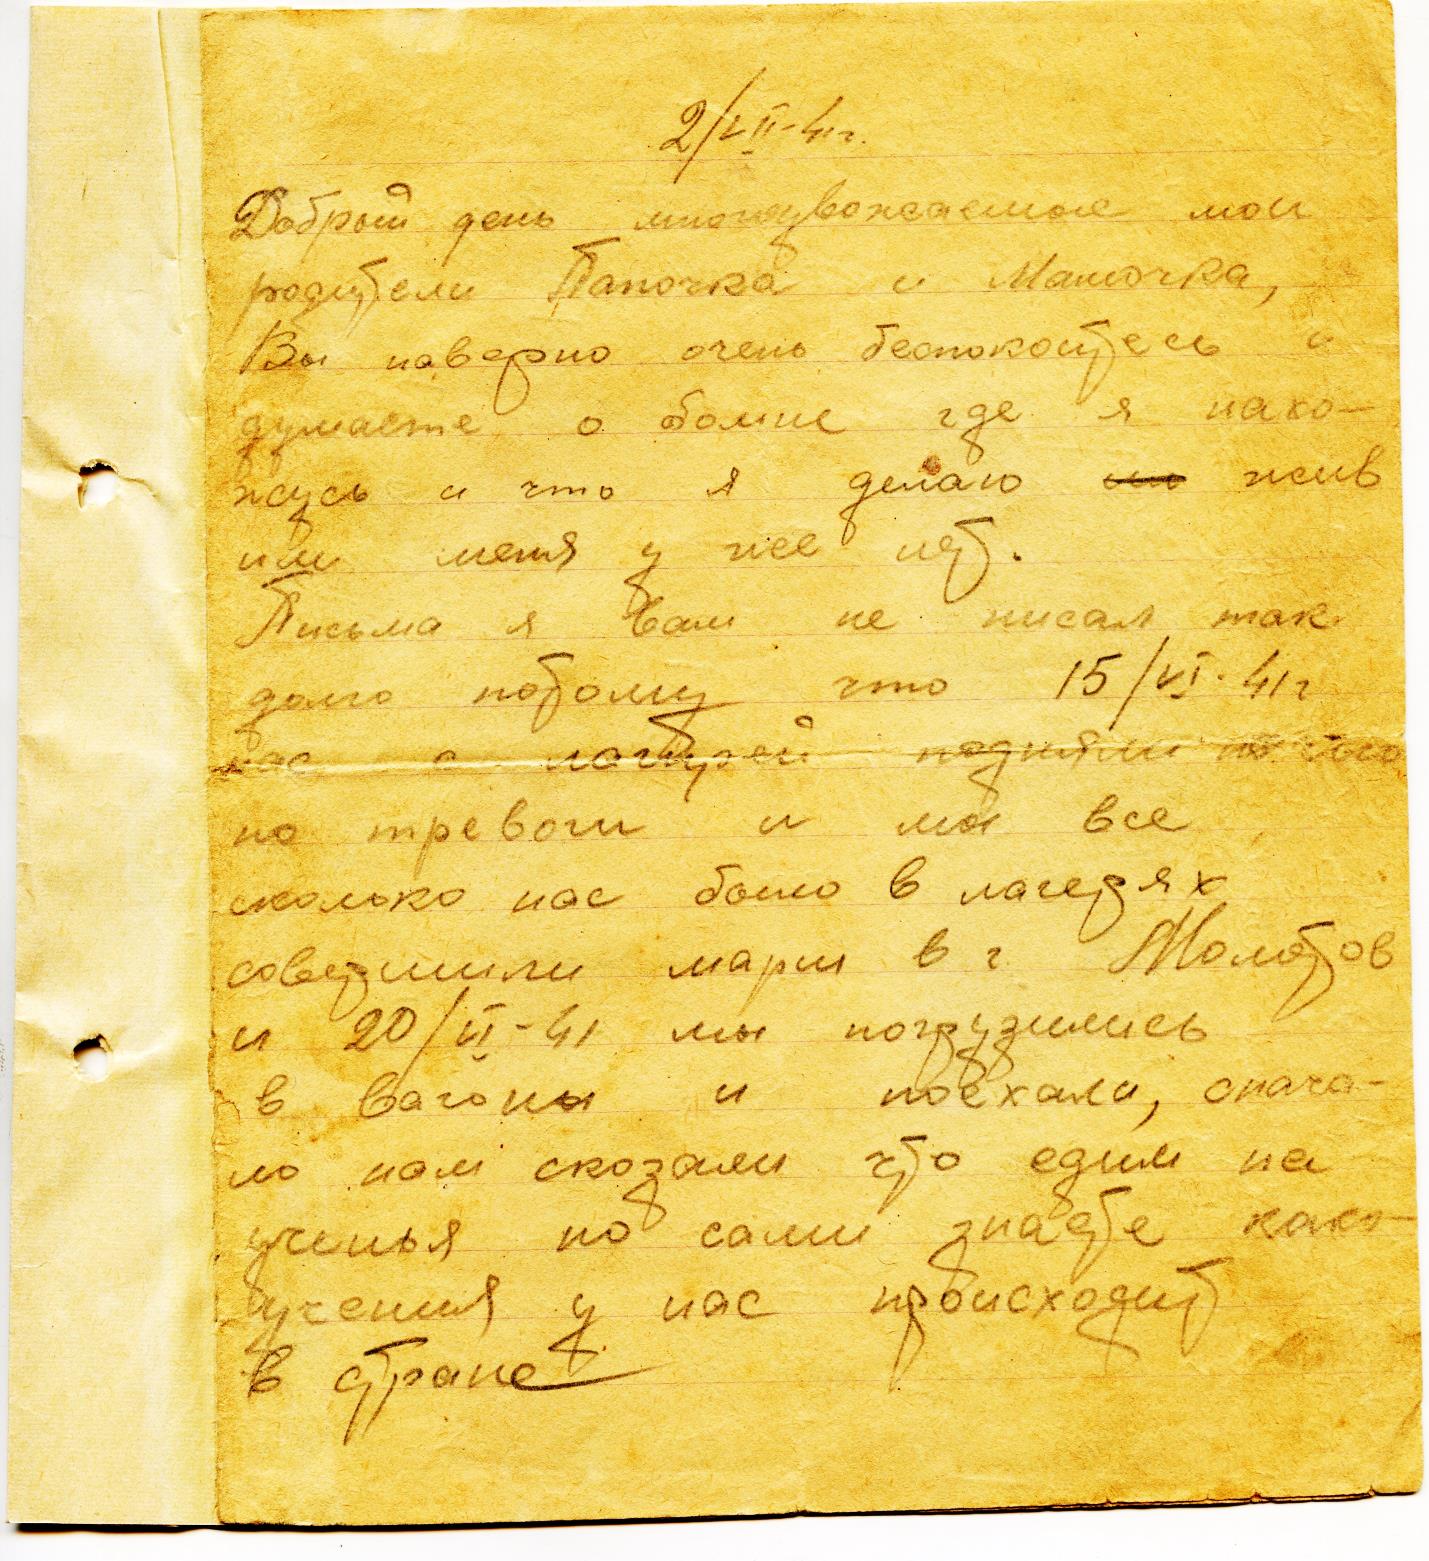 2/VII-41г.
Добрый день многоуважаемые мои
родители Папочка и Мамочка,
Вы наверно очень беспокоитесь и
думаете о томже где я нахо-
жусь и что я делаю жив
или меня уже нет.
Письма я Вам не писал так
долго потому что 15/VI-41г
нас с лагерей подняли
по тревоги и мы все
сколько нас было в лагерях
совершили марш в г Молотов
и 20/VI-41 мы погрузились
в вагоны и поехали, снача-
ло нам сказали что едим на
ученья но сами знаете како
учения у нас происходит
в стране